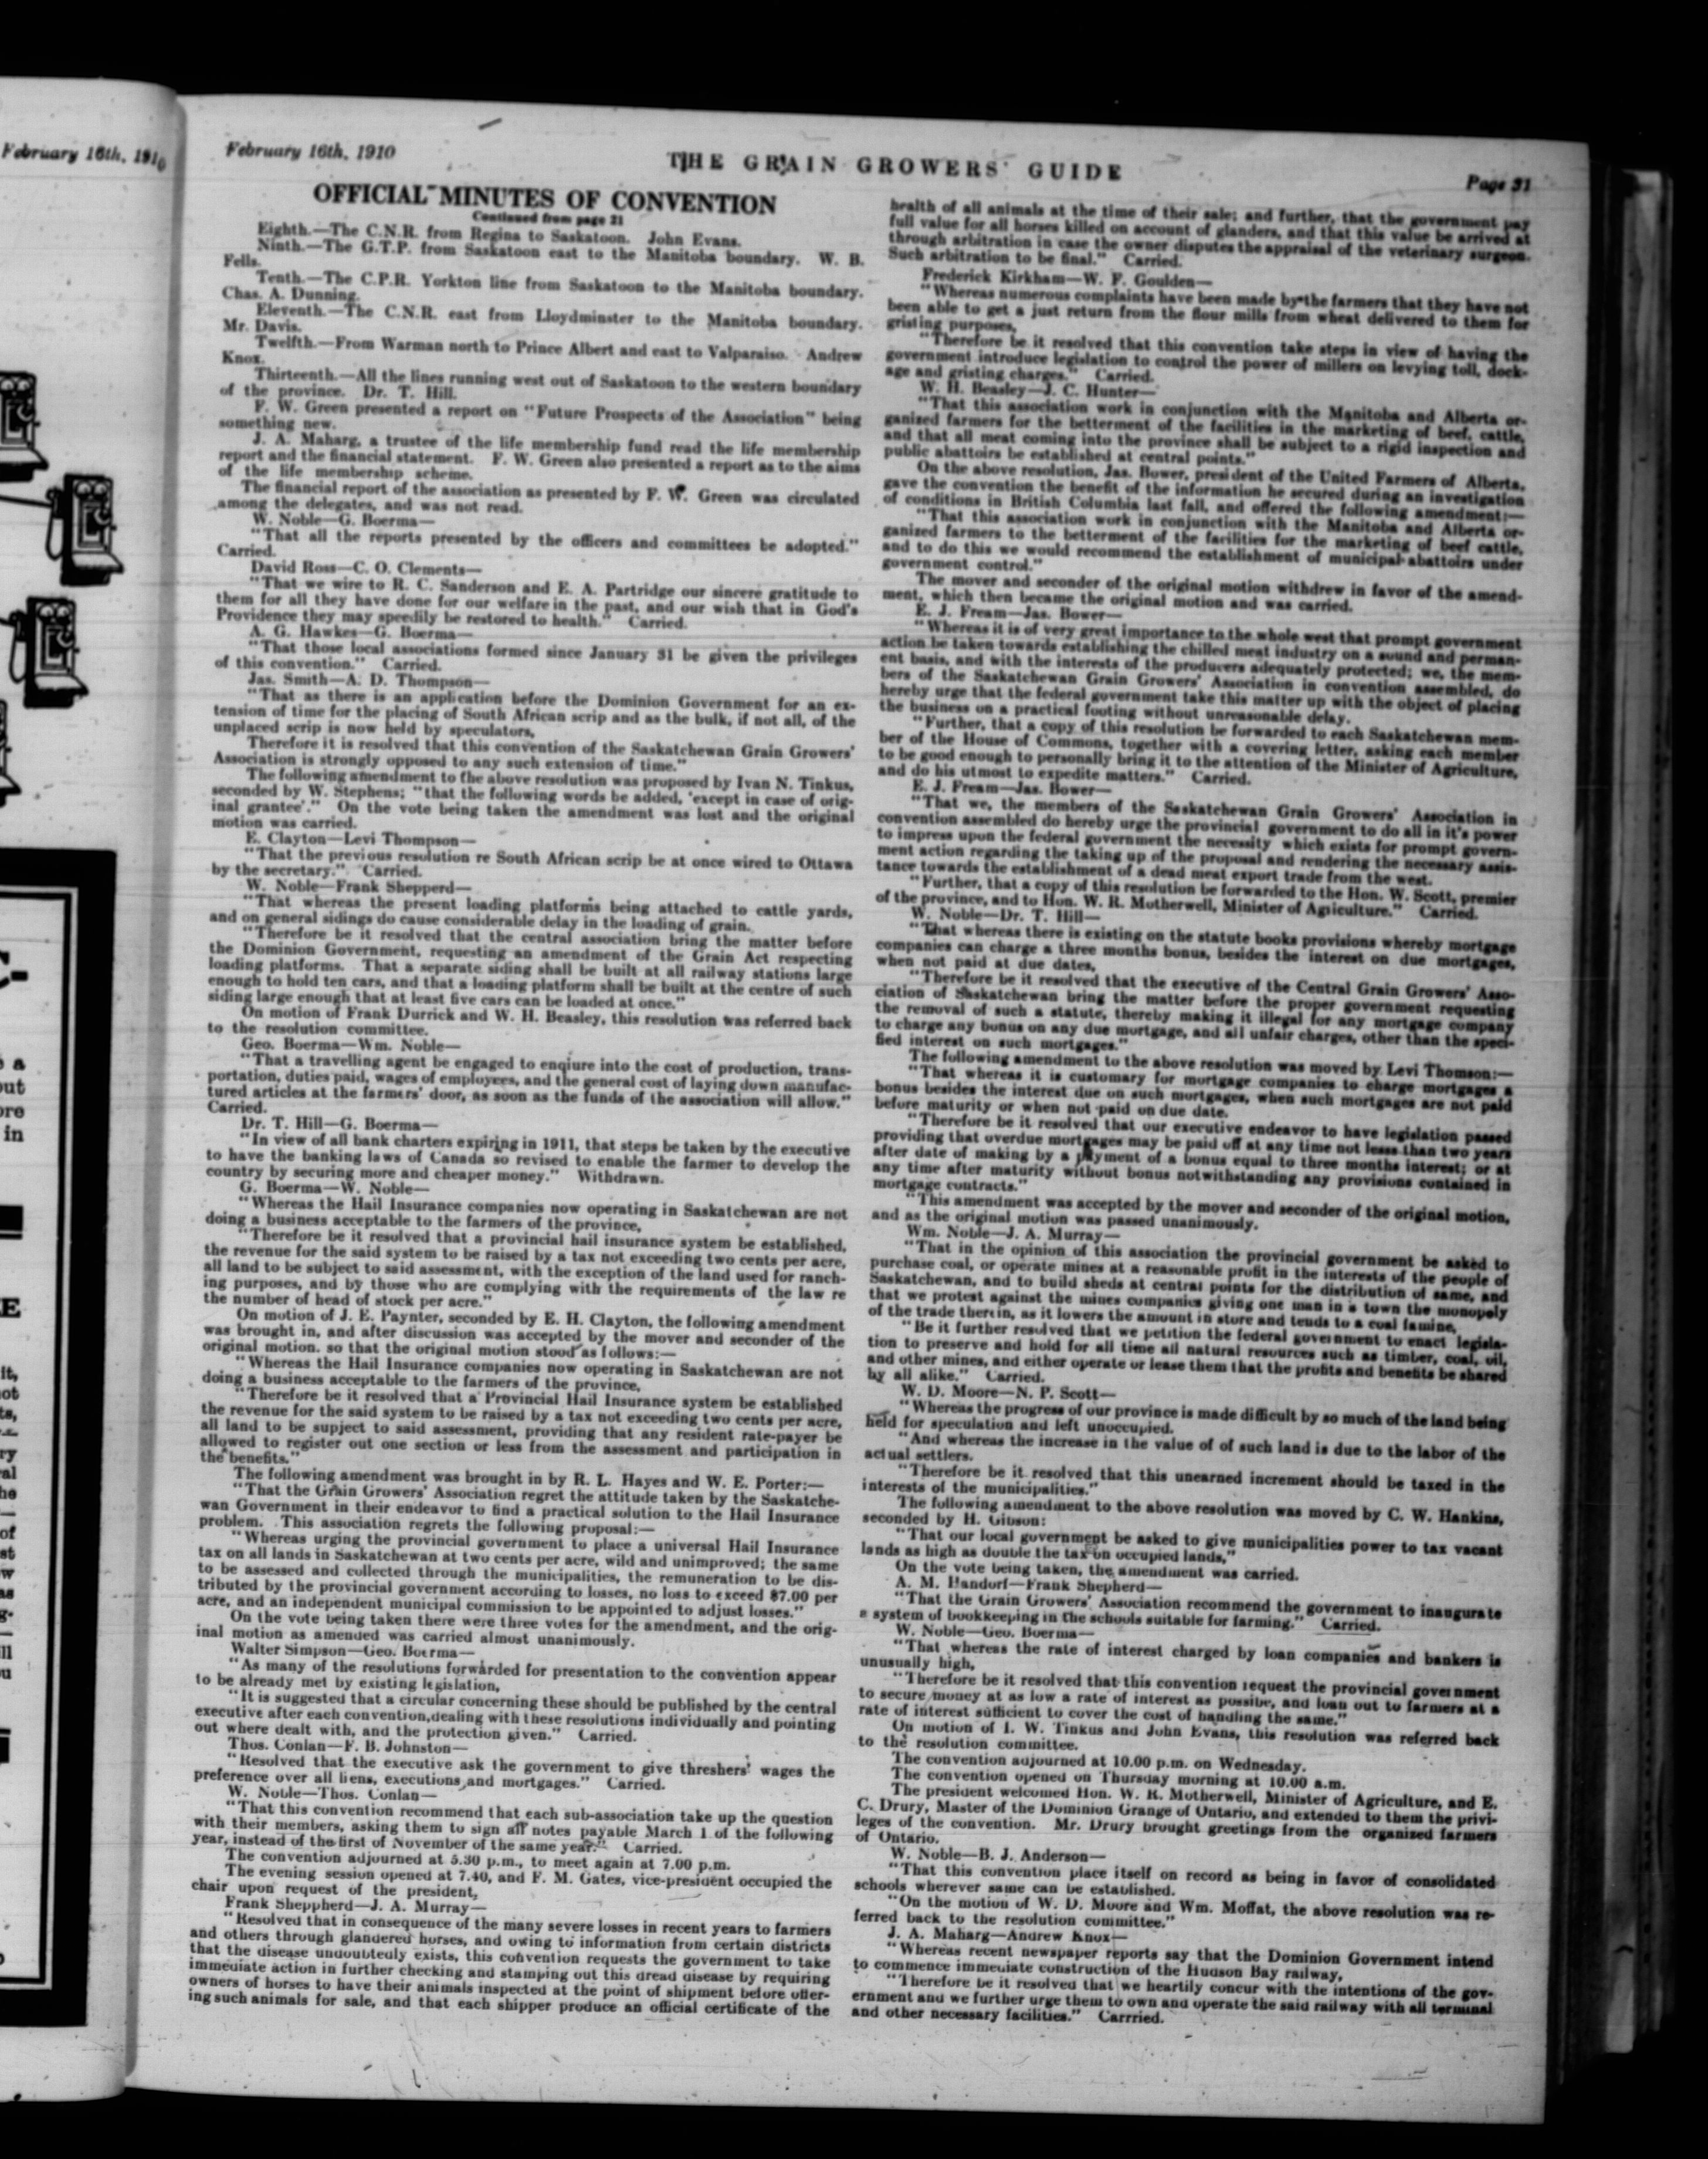 February 16th, 1910
a
out
ore
in
E
it,
ot
ts,
ry
al
he
of
st
w
as
g-
ll
u
February 16th, 1910
THE GRAIN GROWERS' GUIDE
Page 31
OFFICIAL MINUTES OF CONVENTION
Continued from page 21
Eighth.—The C.N.R. from Regina to Saskatoon. John Evans.
Ninth.—The G.T.P. from Saskatoon east to the Manitoba boundary. W. B.
Fells.
Tenth.—The C.P.R. Yorkton line from Saskatoon to the Manitoba boundary.
Chas. A. Dunning.
Eleventh.—The C.N.R. east from Lloydminster to the Manitoba boundary.
Mr. Davis.
Twelfth.—From Warman north to Prince Albert and east to Valparaiso. Andrew
Knox.
Thirteenth.—All the lines running west out of Saskatoon to the western boundary
of the province. Dr. T. Hill.
F. W. Green presented a report on "Future Prospects of the Association" being
something new.
J. A. Maharg, a trustee of the life membership fund read the life membership
report and the financial statement. F. W. Green also presented a report as to the aims
of the life membership scheme.
The financial report of the association as presented by F. W. Green was circulated
among the delegates, and was not read.
W. Noble—G. Boerma—
"That all the reports presented by the officers and committees be adopted."
Carried.
David Ross—C. O. Clements—
"That we wire to R. C. Sanderson and E. A. Partridge our sincere gratitude to
them for all they have done for our welfare in the past, and our wish that in God's
Providence they may speedily be restored to health." Carried.
A. G. Hawkes—G. Boerma—
"That those local associations formed since January 31 be given the privileges
of this convention." Carried.
Jas. Smith—A. D. Thompson—
"That as there is an application before the Dominion Government for an ex-
tension of time for the placing of South African scrip and as the bulk, if not all, of the
unplaced scrip is now held by speculators,
Therefore it is resolved that this convention of the Saskatchewan Grain Growers'
Association is strongly opposed to any such extension of time."
The following amendment to the above resolution was proposed by Ivan N. Tinkus,
seconded by W. Stephens; "that the following words be added, 'except in case of orig-
inal grantee'." On the vote being taken the amendment was lost and the original
motion was carried.
E. Clayton—Levi Thompson—
"That the previous resolution re South African scrip be at once wired to Ottawa
by the secretary." Carried.
W. Noble—Frank Shepperd—
"That whereas the present loading platforms being attached to cattle yards,
and on general sidings do cause considerable delay in the loading of grain.
"Therefore be it resolved that the central association bring the matter before
the Dominion Government, requesting an amendment of the Grain Act respecting
loading platforms. That a separate siding shall be built at all railway stations large
enough to hold ten cars, and that a loading platform shall be built at the centre of such
siding large enough that at least five cars can be loaded at once."
On motion of Frank Durrick and W. H. Beasley, this resolution was referred back
to the resolution committee.
Geo. Boerma—Wm. Noble—
"That a travelling agent be engaged to enqiure into the cost of production, trans-
portation, duties paid, wages of employees, and the general cost of laying down manufac-
tured articles at the farmers' door, as soon as the funds of the association will allow."
Carried.
Dr. T. Hill—G. Boerma—
"In view of all bank charters expiring in 1911, that steps be taken by the executive
to have the banking laws of Canada so revised to enable the farmer to develop the
country by securing more and cheaper money." Withdrawn.
G. Boerma—W. Noble—
"Whereas the Hail Insurance companies now operating in Saskatchewan are not
doing a business acceptable to the farmers of the province,
"Therefore be it resolved that a provincial hail insurance system be established,
the revenue for the said system to be raised by a tax not exceeding two cents per acre,
all land to be subject to said assessment, with the exception of the land used for ranch-
ing purposes, and by those who are complying with the requirements of the law re
the number of head of stock per acre."
On motion of J. E. Paynter, seconded by E. H. Clayton, the following amendment
was brought in, and after discussion was accepted by the mover and seconder of the
original motion. so that the original motion stood as follows:—
"Whereas the Hail Insurance companies now operating in Saskatchewan are not
doing a business acceptable to the farmers of the province,
"Therefore be it resolved that a Provincial Hail Insurance system be established
the revenue for the said system to be raised by a tax not exceeding two cents per acre,
all land to be supject to said assessment, providing that any resident rate-payer be
allowed to register out one section or less from the assessment and participation in
the benefits."
The following amendment was brought in by R. L. Hayes and W. E. Porter:—
"That the Grain Growers' Association regret the attitude taken by the Saskatche-
wan Government in their endeavor to find a practical solution to the Hail Insurance
problem. This association regrets the following proposal:—
"Whereas urging the provincial government to place a universal Hail Insurance
tax on all lands in Saskatchewan at two cents per acre, wild and unimproved; the same
to be assessed and collected through the municipalities, the remuneration to be dis-
tributed by the provincial government according to losses, no loss to exceed $7.00 per
acre, and an independent municipal commission to be appointed to adjust losses."
On the vote being taken there were three votes for the amendment, and the orig-
inal motion as amended was carried almost unanimously.
Walter Simpson—Geo. Boerma—
"As many of the resolutions forwarded for presentation to the convention appear
to be already met by existing legislation,
"It is suggested that a circular concerning these should be published by the central
executive after each convention, dealing with these resolutions individually and pointing
out where dealt with, and the protection given." Carried.
Thos. Conlan—F. B. Johnston—
"Resolved that the executive ask the government to give threshers' wages the
preference over all liens, executions and mortgages." Carried.
W. Noble—Thos. Conlan—
"That this convention recommend that each sub-association take up the question
with their members, asking them to sign all notes payable March 1 of the following
year, instead of the first of November of the same year." Carried.
The convention adjourned at 5.30 p.m., to meet again at 7.00 p.m.
The evening session opened at 7.40, and F. M. Gates, vice-president occupied the
chair upon request of the president,
Frank Sheppherd—J. A. Murray—
"Resolved that in consequence of the many severe losses in recent years to farmers
and others through glandered horses, and owing to information from certain districts
that the disease undoubtedly exists, this convention requests the government to take
immediate action in further checking and stamping out this dread disease by requiring
owners of horses to have their animals inspected at the point of shipment before offer-
ing such animals for sale, and that each shipper produce an official certificate of the
health of all animals at the time of their sale; and further, that the government pay
full value for all horses killed on account of glanders, and that this value be arrived at
through arbitration in case the owner disputes the appraisal of the veterinary surgeon.
Such arbitration to be final." Carried.
Frederick Kirkham—W. F. Goulden—
"Whereas numerous complaints have been made by the farmers that they have not
been able to get a just return from the flour mills from wheat delivered to them for
gristing purposes,
"Therefore be it resolved that this convention take steps in view of having the
government introduce legislation to control the power of millers on levying toll, dock-
age and gristing charges." Carried.
W. H. Beasley—J. C. Hunter—
"That this association work in conjunction with the Manitoba and Alberta or-
ganized farmers for the betterment of the facilities in the marketing of beef, cattle,
and that all meat coming into the province shall be subject to a rigid inspection and
public abattoirs be established at central points."
On the above resolution, Jas. Bower, president of the United Farmers of Alberta,
gave the convention the benefit of the information he secured during an investigation
of conditions in British Columbia last fall, and offered the following amendment:—
"That this association work in conjunction with the Manitoba and Alberta or-
ganized farmers to the betterment of the facilities for the marketing of beef cattle,
and to do this we would recommend the establishment of municipal abattoirs under
government control."
The mover and seconder of the original motion withdrew in favor of the amend-
ment, which then became the original motion and was carried.
E. J. Fream—Jas. Bower—
"Whereas it is of very great importance to the whole west that prompt government
action be taken towards establishing the chilled meat industry on a sound and perman-
ent basis, and with the interests of the producers adequately protected; we, the mem-
bers of the Saskatchewan Grain Growers' Association in convention assembled, do
hereby urge that the federal government take this matter up with the object of placing
the business on a practical footing without unreasonable delay.
"Further, that a copy of this resolution be forwarded to each Saskatchewan mem-
ber of the House of Commons, together with a covering letter, asking each member
to be good enough to personally bring it to the attention of the Minister of Agriculture,
and do his utmost to expedite matters." Carried.
E. J. Fream—Jas. Bower—
"That we, the members of the Saskatchewan Grain Growers' Association in
convention assembled do hereby urge the provincial government to do all in it's power
to impress upon the federal government the necessity which exists for prompt govern-
ment action regarding the taking up of the proposal and rendering the necessary assis-
tance towards the establishment of a dead meat export trade from the west.
"Further, that a copy of this resolution be forwarded to the Hon. W. Scott, premier
of the province, and to Hon. W. R. Motherwell, Minister of Agriculture." Carried.
W. Noble—Dr. T. Hill—
"That whereas there is existing on the statute books provisions whereby mortgage
companies can charge a three months bonus, besides the interest on due mortgages,
when not paid at due dates,
"Therefore be it resolved that the executive of the Central Grain Growers' Asso-
ciation of Saskatchewan bring the matter before the proper government requesting
the removal of such a statute, thereby making it illegal for any mortgage company
to charge any bonus on any due mortgage, and all unfair charges, other than the speci-
fied interest on such mortgages."
The following amendment to the above resolution was moved by Levi Thomson:—
"That whereas it is customary for mortgage companies to charge mortgages a
bonus besides the interest due on such mortgages, when such mortgages are not paid
before maturity or when not paid on due date.
"Therefore be it resolved that our executive endeavor to have legislation passed
providing that overdue mortgages may be paid off at any time not less than two years
after date of making by a payment of a bonus equal to three months interest; or at
any time after maturity without bonus notwithstanding any provisions contained in
mortgage contracts."
"This amendment was accepted by the mover and seconder of the original motion,
and as the original motion was passed unanimously.
Wm. Noble—J. A. Murray—
"That in the opinion of this association the provincial government be asked to
purchase coal, or operate mines at a reasonable profit in the interests of the people of
Saskatchewan, and to build sheds at central points for the distribution of same, and
that we protest against the mines companies giving one man in a town the monopoly
of the trade therein, as it lowers the amount in store and tends to a coal famine,
"Be it further resolved that we petition the federal government to enact legisla-
tion to preserve and hold for all time all natural resources such as timber, coal, oil,
and other mines, and either operate or lease them that the profits and benefits be shared
by all alike." Carried.
W. D. Moore—N. P. Scott—
"Whereas the progress of our province is made difficult by so much of the land being
held for speculation and left unoccupied.
"And whereas the increase in the value of of such land is due to the labor of the
actual settlers.
"Therefore be it resolved that this unearned increment should be taxed in the
interests of the municipalities."
The following amendment to the above resolution was moved by C. W. Hankins,
seconded by H. Gibson:
"That our local government be asked to give municipalities power to tax vacant
lands as high as double the tax on occupied lands,"
On the vote being taken, the amendment was carried.
A. M. Handorf—Frank Shepherd—
"That the Grain Growers' Association recommend the government to inaugurate
a system of bookkeeping in the schools suitable for farming." Carried.
W. Noble—Geo. Boerma—
"That whereas the rate of interest charged by loan companies and bankers is
unusually high,
"Therefore be it resolved that this convention request the provincial government
to secure money at as low a rate of interest as possibe, and loan out to farmers at a
rate of interest sufficient to cover the cost of handling the same."
On motion of I. W. Tinkus and John Evans, this resolution was referred back
to the resolution committee.
The convention adjourned at 10.00 p.m. on Wednesday.
The convention opened on Thursday morning at 10.00 a.m.
The president welcomed Hon. W. R. Motherwell, Minister of Agriculture, and E.
C. Drury, Master of the Dominion Grange of Ontario, and extended to them the privi-
leges of the convention. Mr. Drury brought greetings from the organized farmers
of Ontario.
W. Noble—B. J. Anderson—
"That this convention place itself on record as being in favor of consolidated
schools wherever same can be established.
"On the motion of W. D. Moore and Wm. Moffat, the above resolution was re-
ferred back to the resolution committee."
J. A. Maharg—Andrew Knox—
"Whereas recent newspaper reports say that the Dominion Government intend
to commence immediate construction of the Hudson Bay railway,
"Therefore be it resolved that we heartily concur with the intentions of the gov-
ernment and we further urge them to own and operate the said railway with all terminal
and other necessary facilities." Carrried.